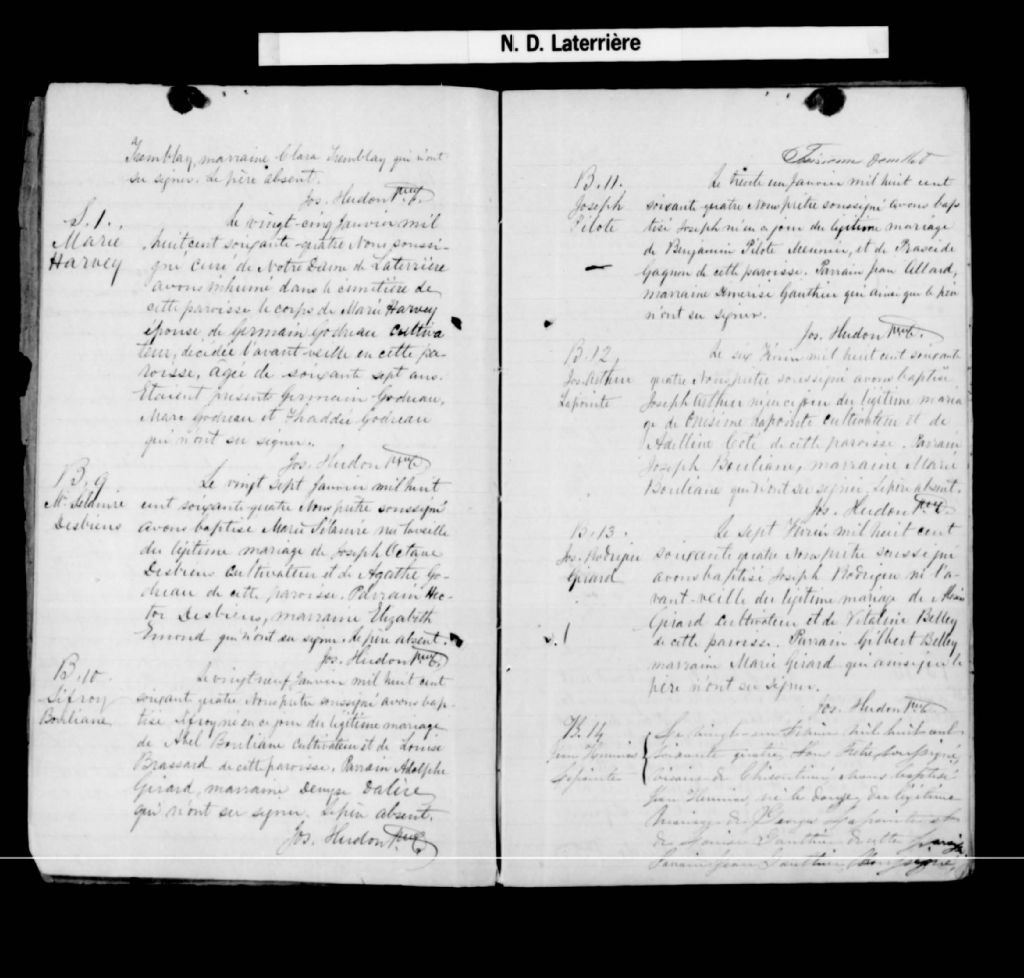 N. D. Laterrière
Tremblay, marraine Clara Tremblay qui n'ont
su signer. Le père absent.
Jos. Hudon Ptre
S. 1.
Marie
Harvey
Le vingt-cinq Janvier mil
huit cent soixante-quatre Nous soussi-
gné curé de Notre Dame de Laterrière
avons inhumé dans le cimetière de
cette paroisse le corps de Marie Harvey
épouse de Germain Godreau cultiva
teur, décédée l'avant-veille en cette pa-
roisse, agée de soixante sept ans.
Etaient présent Germain Godreau,
Marc Godreau et Thaddée Godreau
qui n'ont su signer.
Jos. Hudon Ptre
B. 9
Mie Célanire
Desbiens
Le vingt sept Janvier mil huit
cent soixante-quatre Nous prêtre soussigné
avons baptisé Marie Célanire née la veille
du légitime mariage de Joseph Octave
Desbiens cultivateur et de Agathe Go-
dreau de cette paroisse. Parrain Hec-
tor Desbiens, marraine Elizabeth
Emond qui n'ont su signer le père absent.
Jos. Hudon Ptre
B. 10.
Lifroy
Bouliane
Le vingt neuf Janvier mil huit cent
soixante quatre Nous prêtre soussigné avons bap-
tisé Lifroy né en ce jour du légitime mariage
de Abel Bouliane cultivateur et de Louise
Brassard de cette paroisse. Parrain Adolphe
Girard, marraine Denyse Dalère
qui n'ont su signer. Le père absent.
Jos. Hudon Ptre
Troisième feuillet
B. 11.
Joseph
Pilote
Le trente un Janvier mil huit cent
soixante-quatre Nous prêtre soussigné avons bap
tisé Joseph né en ce jour du légitime mariage
de Benjamin Pilote Meunier, et de Praxcide
Gagnon de cette paroisse. Parrain Jean Allard,
marraine Démerise Gauthier qui ainsi que le père
n'ont su signer.
Jos. Hudon Ptre
B. 12.
Jos. Arthur
Lapointe
Le six Février mil huit cent soixante
quatre Nous prêtre soussigné avons baptisé
Joseph Arthur né en ce jour du légitime maria
ge de Onésime Lapointe cultivateur et de
Adelline Coté de cette paroisse. Parrain
Joseph Bouliane, marraine Marie
Bouliane qui n'ont su signer, le père absent.
Jos. Hudon Ptre
B. 13.
Jos. Rodrigue
Girard
Le sept Février mil huit cent
soixante quatre Nous prêtre soussigné
avons baptisé Joseph Rodrigue né l'a-
vant-veille du légitime mariage de
Girard cultivateur et de Vitaline Belley
de cette paroisse. Parrain Gilbert Belley
marraine Marie Girard qui ainsi que le
père n'ont su signer.
Jos. Hudon Ptre
S. 1
B. 14
Lapointe
Le vingt-un Février mil huit cent
soixante quatre, Nous Prêtre, soussigné,
vicaire de Chicoutimi, avons baptisé
né le douze, du légitime
Mariage de Georges Lapointe et
de Gauthier de cette Paroisse
Parrain Jean Gauthier, soussigné,